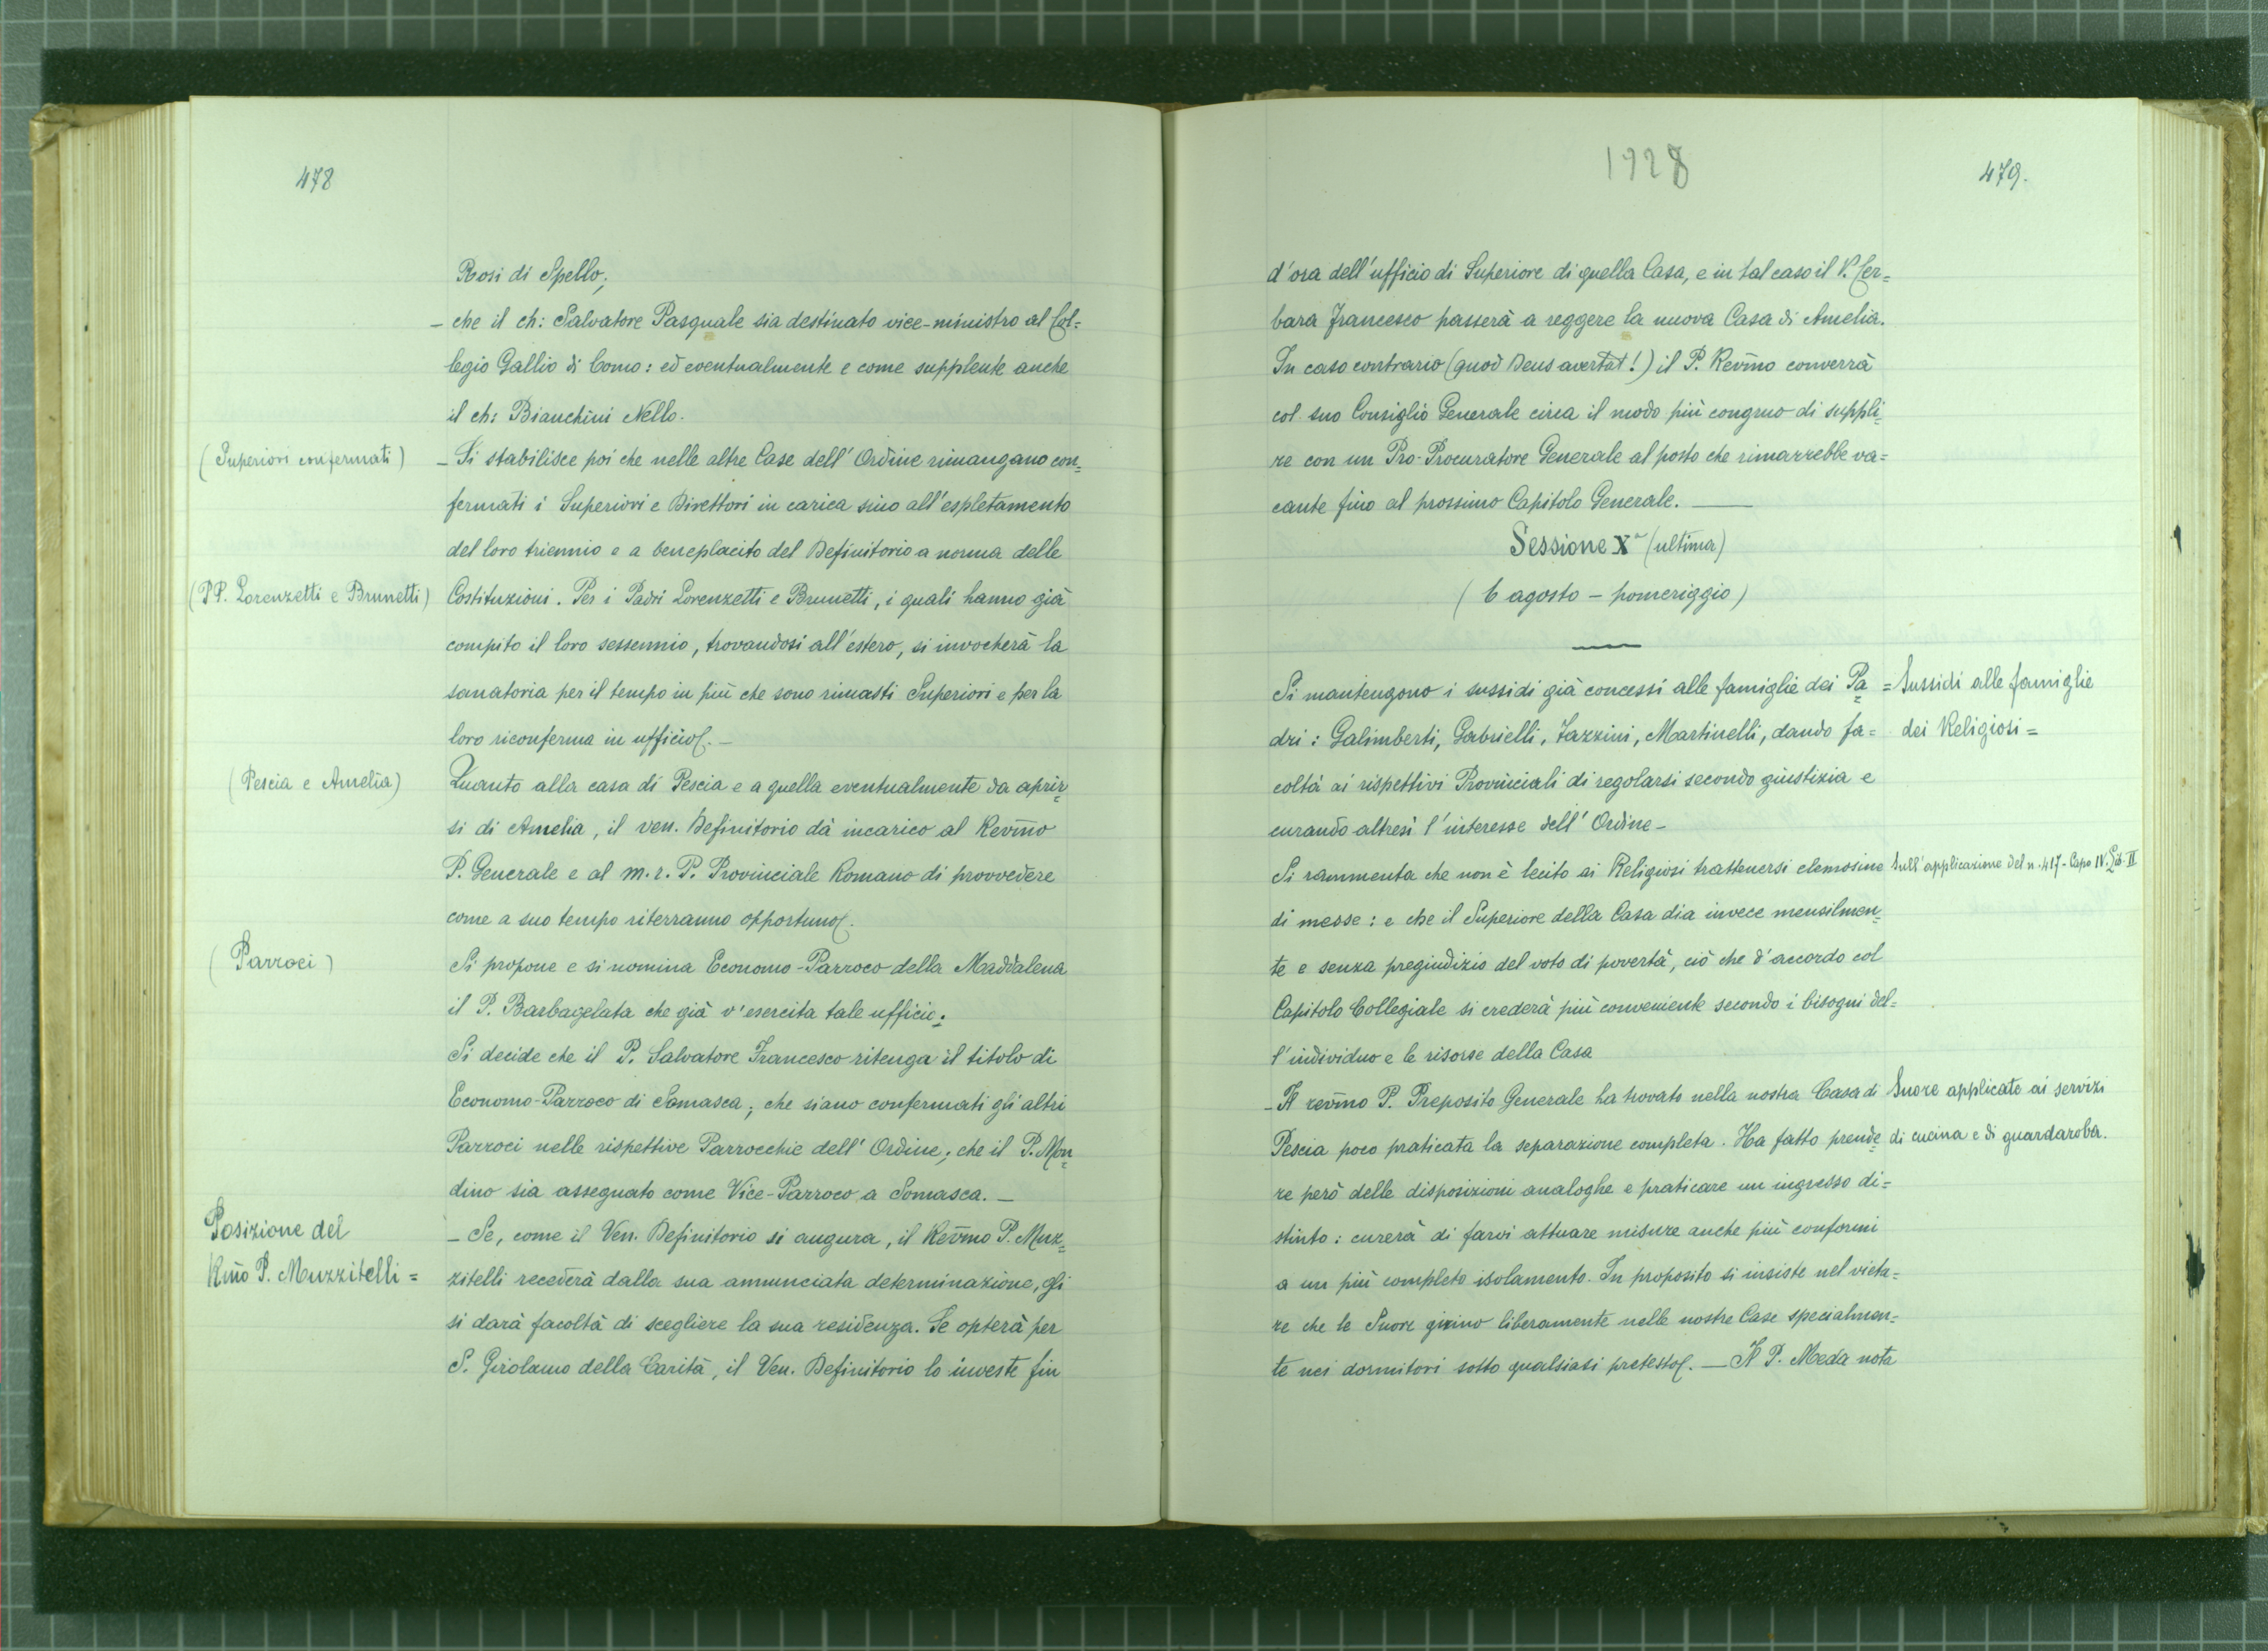 478
Rosi di Spello;
- che il ch: Salvatore Pasquale sia destinato vice-ministro al Col=
legio Gallio di Como: ed eventualmente e come supplente anche
il ch: Bianchini Nello.
(Superiori confermati)
- Si stabilisce poi che nelle altre Case dell' Ordine rimangano con=
fermati i Superiori e Direttori in carica sino all'espletamento
del loro triennio e a beneplacito del Definitorio a norma delle
(PP. Lorenzetti e Brunetti)
Costituzioni. Per i Padri Lorenzetti e Brunetti, i quali hanno già
compito il loro sessennio, trovandosi all'estero, si invocherà la
sanatoria per il tempo in più che sono rimasti Superiori e per la
loro riconferma in ufficio. -
(Pescia e Amelia)
Quanto alla casa di Pescia e a quella eventualmente da aprir=
si di Amelia, il ven. Definitorio dà incarico al Rev̄mo
P. Generale e al m. r. P. Provinciale Romano di provvedere
come a suo tempo riterranno opportuno.
(Parroci)
Si propone e si nomina Economo-Parroco della Maddalena
il P. Barbagelata che già v'esercita tale ufficio:
Si decide che il P. Salvatore Francesco ritenga il titolo di
Economo-Parroco di Somasca; che siano confermati gli altri
Parroci nelle rispettive Parrocchie dell' Ordine; che il P. Mon=
dino sia assegnato come Vice-Parroco a Somasca. -
Posizione del
Rm̄o P. Muzzitelli =
- Se, come il Ven. Definitorio si augura, il Rev̄mo P. Muz=
zitelli recederà dalla sua annunciata determinazione, gli
si darà facoltà di scegliere la sua residenza. Se opterà per
S. Girolamo della Carità, il Ven. Definitorio lo investe fin
1928
479.
d'ora dell'ufficio di Superiore di quella Casa, e in tal caso il P. Cer=
bara Francesco passerà a reggere la nuova Casa di Amelia.
In caso contrario (quod Deus avertat!) il P. Rev̄mo converrà
col suo Consiglio Generale circa il modo più congruo di suppli=
re con un Pro-Procuratore Generale al posto che rimarrebbe va=
cante fino al prossimo Capitolo Generale. -
Sessione Xª (ultima)
(6 agosto - pomeriggio)
Si mantengono i sussidi già concessi alle famiglie dei Pa=
dri: Galimberti, Gabrielli, Zazzini, Martinelli, dando fa=
coltà ai rispettivi Provinciali di regolarsi secondo giustizia e
curando altresì l'interesse dell' Ordine -
= Sussidi alle famiglie
dei Religiosi =
Si rammenta che non è lecito ai Religiosi trattenersi elemosine
di messe: e che il Superiore della Casa dia invece mensilmen=
te e senza pregiudizio del voto di povertà, ciò che d'accordo col
Capitolo Collegiale si crederà più conveniente secondo i bisogni del=
l'individuo e le risorse della Casa
Sull'applicazione del n. 417 - Capo IV. Lib. II
- Il rev̄mo P. Preposito Generale ha trovato nella nostra Casa di
Pescia poco praticata la separazione completa. Ha fatto prende=
re però delle disposizioni analoghe e praticare un ingresso di=
stinto: curerà di farvi attuare misure anche più conformi
a un più completo isolamento. In proposito si insiste nel vieta=
re che le Suore girino liberamente nelle nostre Case specialmen=
te nei dormitori sotto qualsiasi pretesto. - Il P. Meda nota
Suore applicate ai servizi
di cucina e di guardaroba.